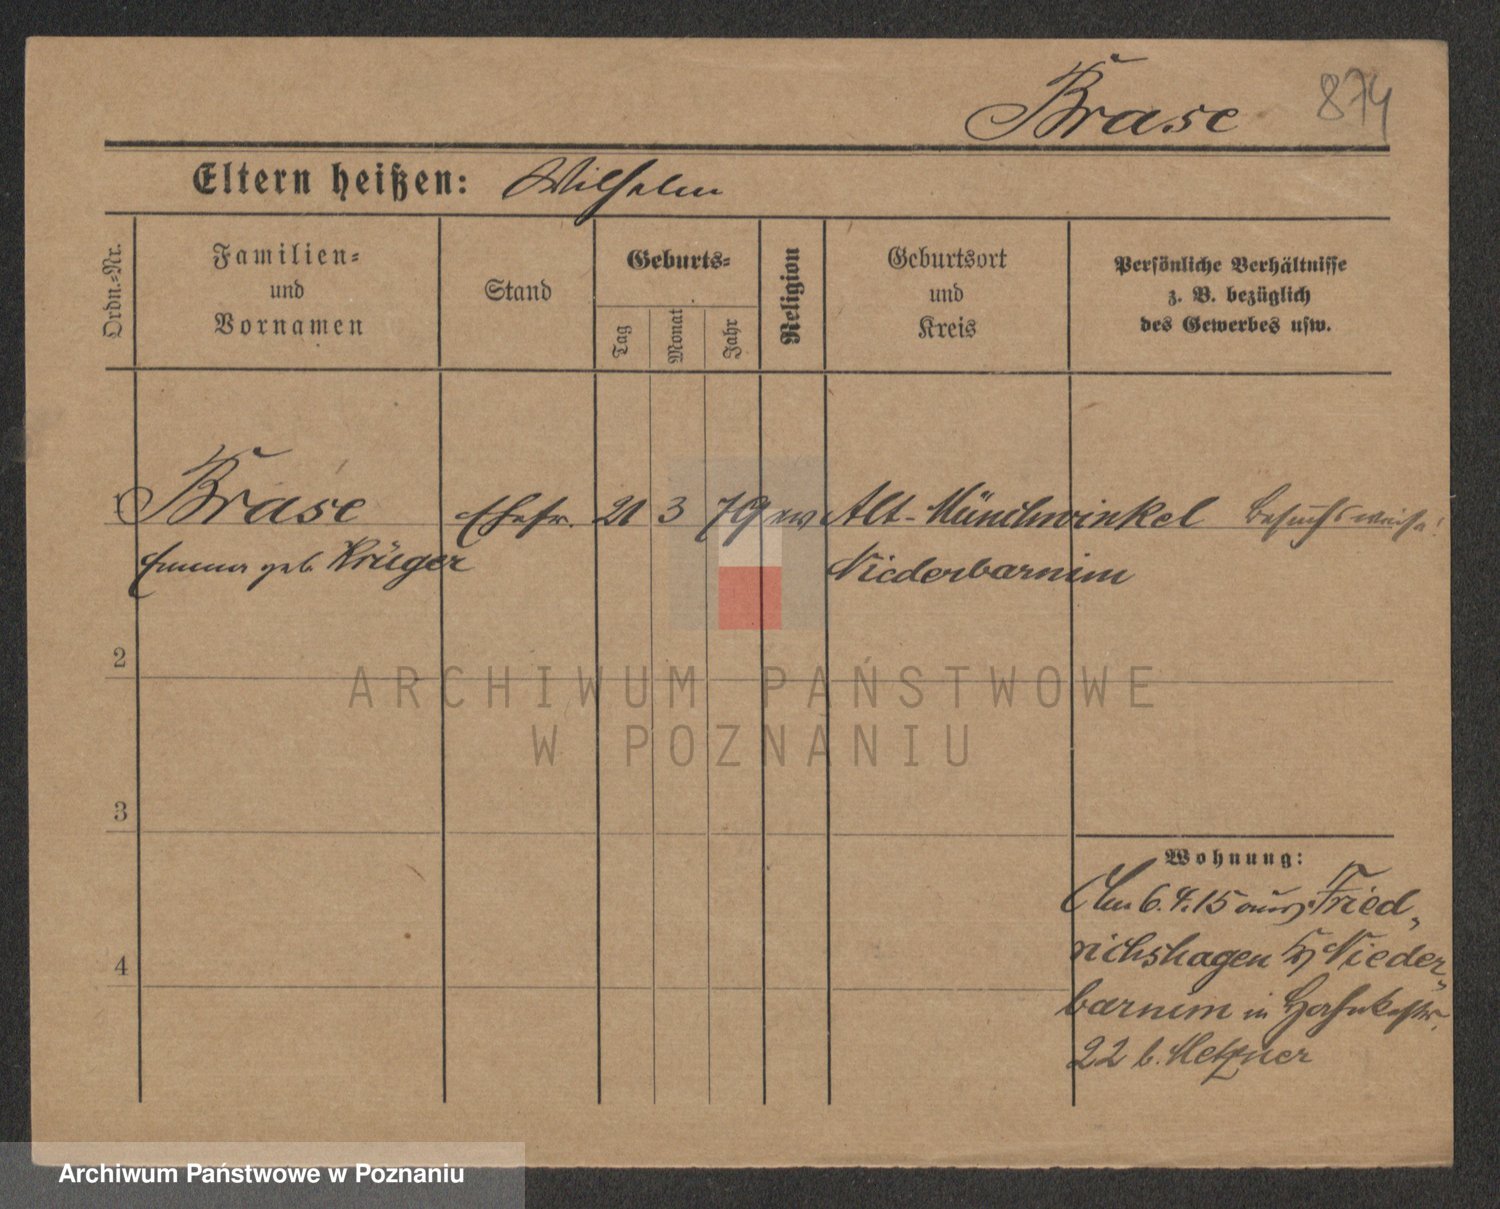 Brase 874
Eltern heißen: Wilhelm
Ordn.-Nr.
Familien-
und
Vornamen
Stand
Geburts-
Tag
Monat
Jahr
Religion
Geburtsort
und
Kreis
Persönliche Verhältnisse
z. B. bezüglich
des Gewerbes usw.
Brase Ehefr. 21 3 79 ev Alt-Münchwinkel besuchsweise!
Emma geb. Krüger Niederbarnim
2
3
4
Wohnung:
Am 6.4.15 aus Fried-
richshagen Kr Nieder-
barnim in
22 b. Metzner
ARCHIWUM PAŃSTWOWE
W POZNANIU
Archiwum Państwowe w Poznaniu